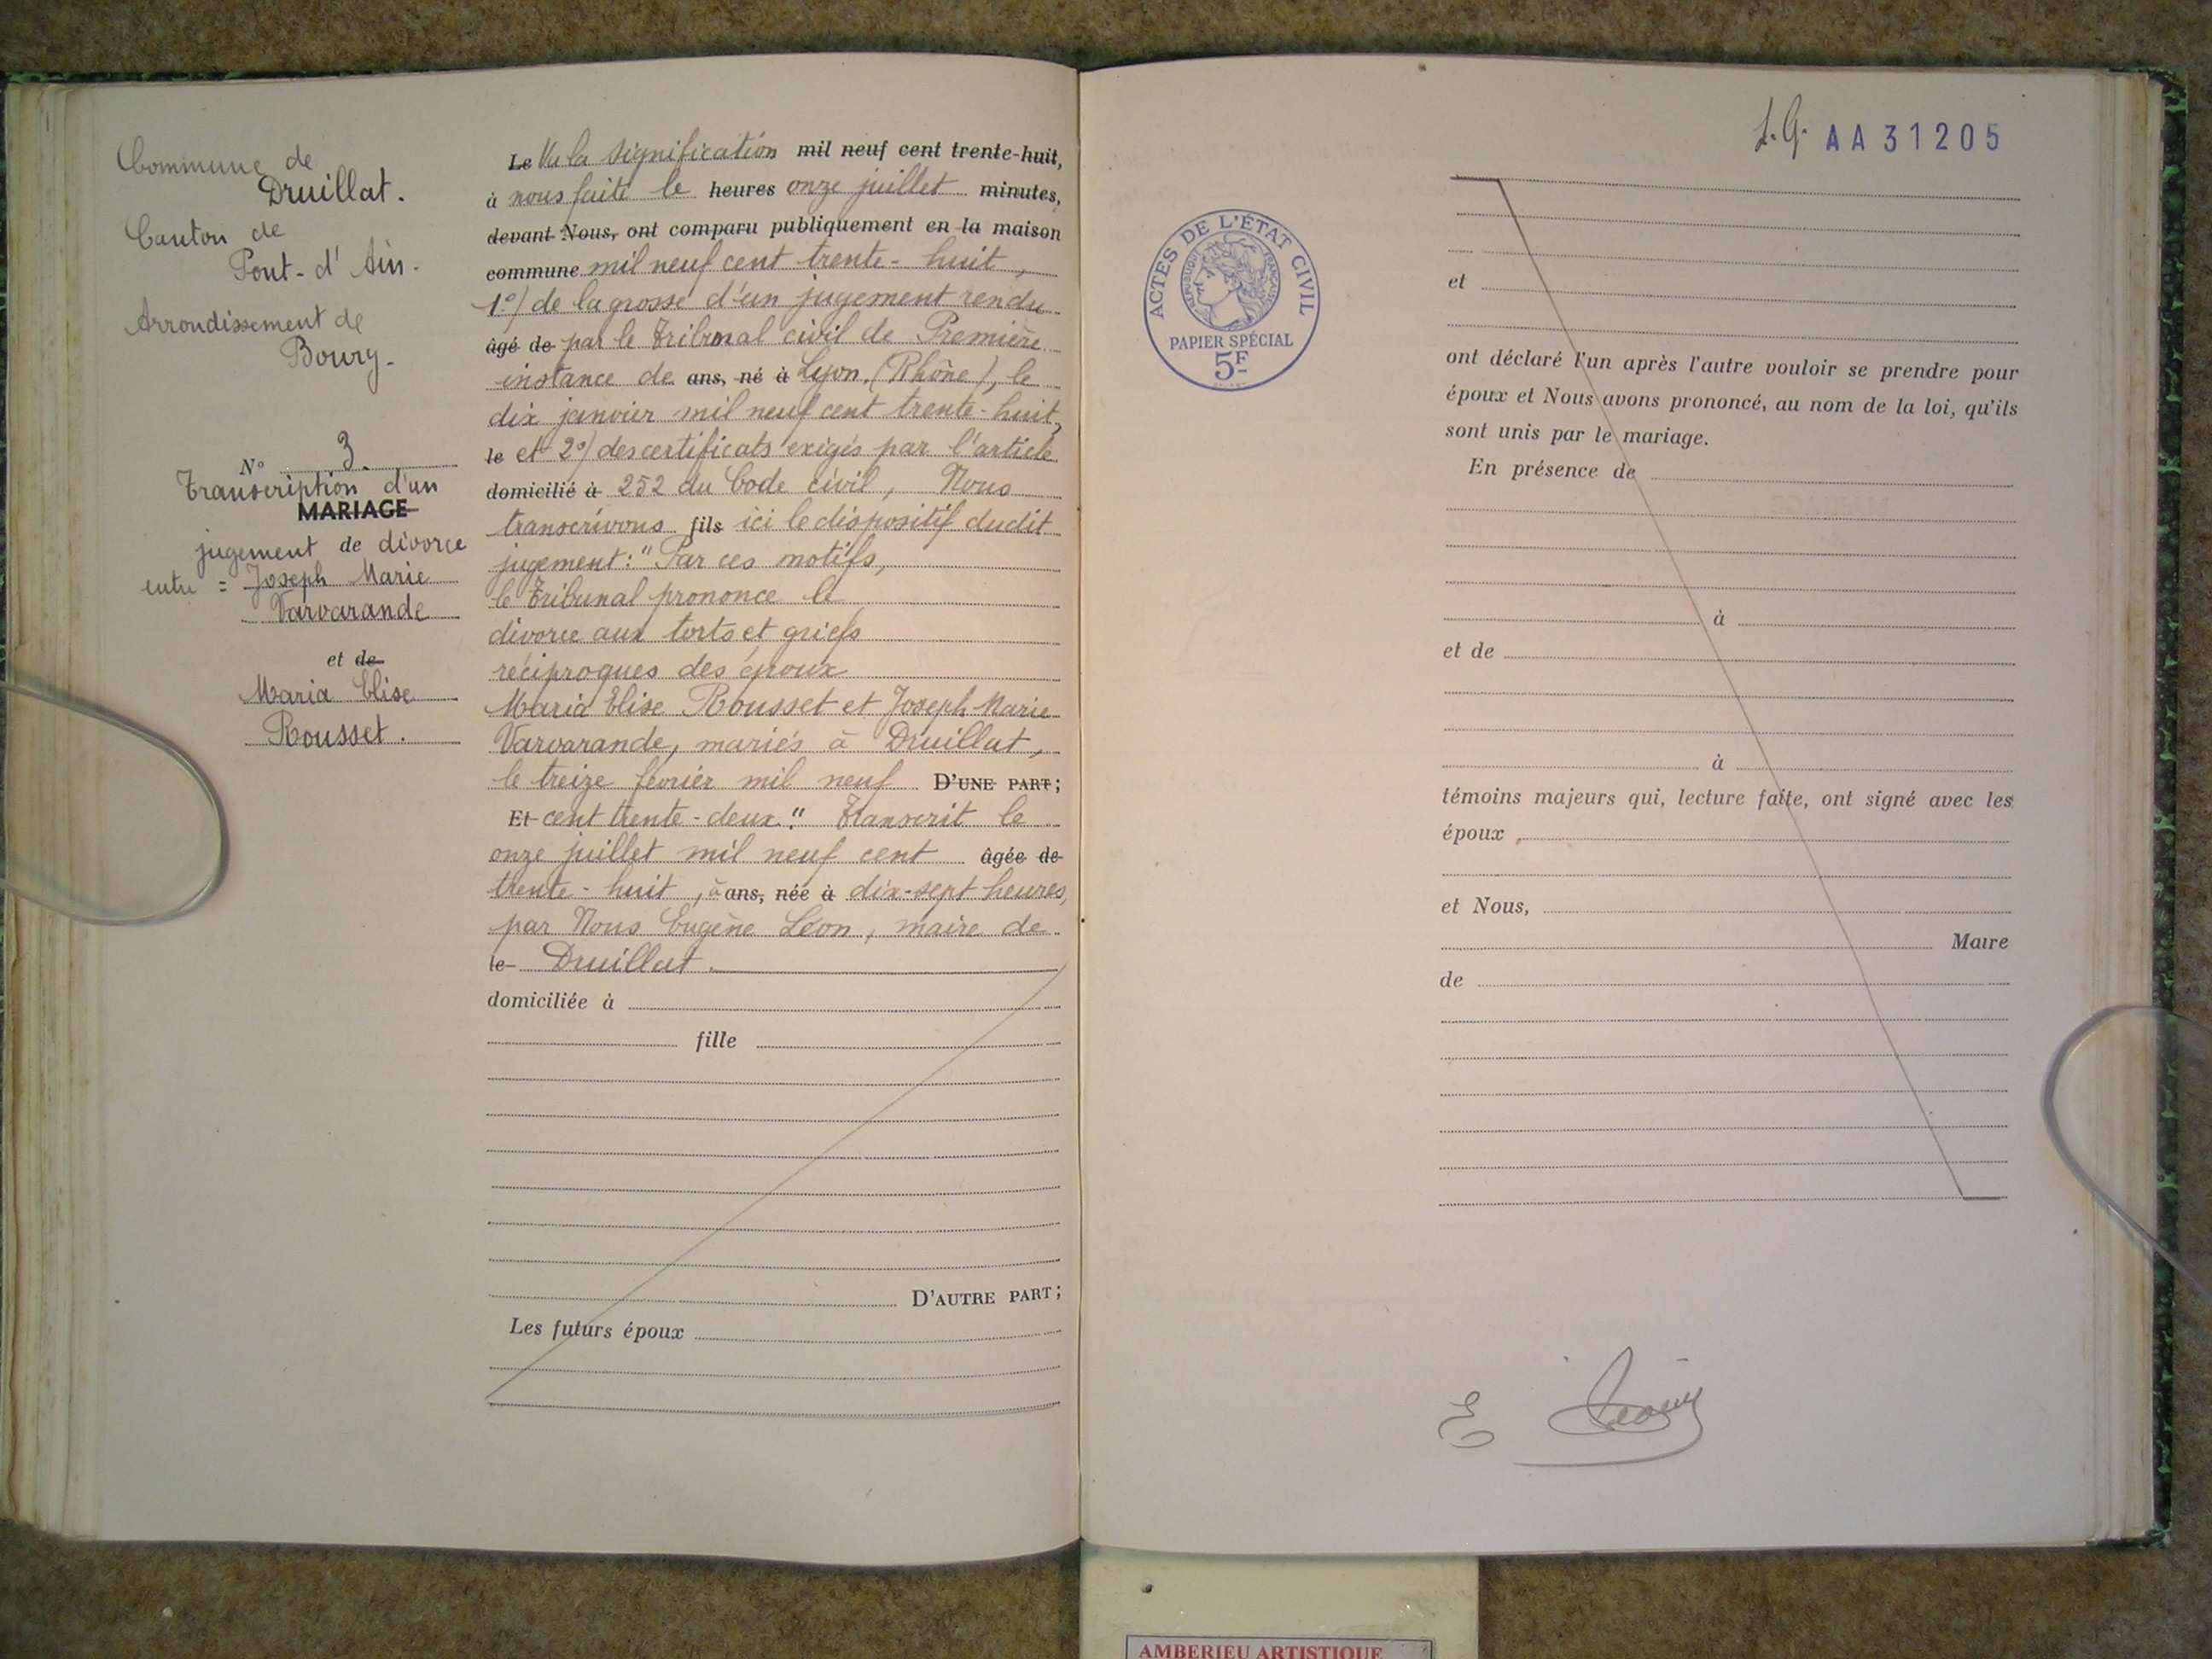 Commune de
Druillat.
Canton de
Pont-d'Ain.
Arrondissement de
Bourg.
N° 3.
Transcription d'un
MARIAGE
jugement de divorce
entre = Joseph Marie
Varvarande
et de
Maria Elise
Rousset.
Le Vu la signification mil neuf cent trente-huit,
à nous faite le heures onze juillet minutes,
devant Nous, ont comparu publiquement en la maison
commune mil neuf cent trente-huit,
1°/ de la grosse d'un jugement rendu
âgé de par le Tribunal civil de Première
instance de ans, né à Lyon, (Rhône), le
dix janvier mil neuf cent trente-huit,
le et 2°/ des certificats exigés par l'article
domicilié à 252 du Code civil, Nous
transcrivons fils ici le dispositif dudit
jugement: "Par ces motifs,
le Tribunal prononce le
divorce aux torts et griefs
réciproques des époux
Maria Elise Rousset et Joseph Marie
Varvarande, mariés à Druillat,
le treize février mil neuf D'UNE PART;
Et cent trente-deux." Transcrit le
onze juillet mil neuf cent âgée de
trente-huit, à ans, née à dix-sept heures,
par Nous Eugène Léon, maire de
le Druillat.
domiciliée à
fille
D'AUTRE PART;
Les futurs époux
AA31205
ACTES DE L'ÉTAT CIVIL
RÉPUBLIQUE FRANÇAISE
PAPIER SPÉCIAL
5F
et
ont déclaré l'un après l'autre vouloir se prendre pour
époux et Nous avons prononcé, au nom de la loi, qu'ils
sont unis par le mariage.
En présence de
à
et de
à
témoins majeurs qui, lecture faite, ont signé avec les
époux,
et Nous,
Maire
de
E Léon
AMBERIEU ARTISTIQUE